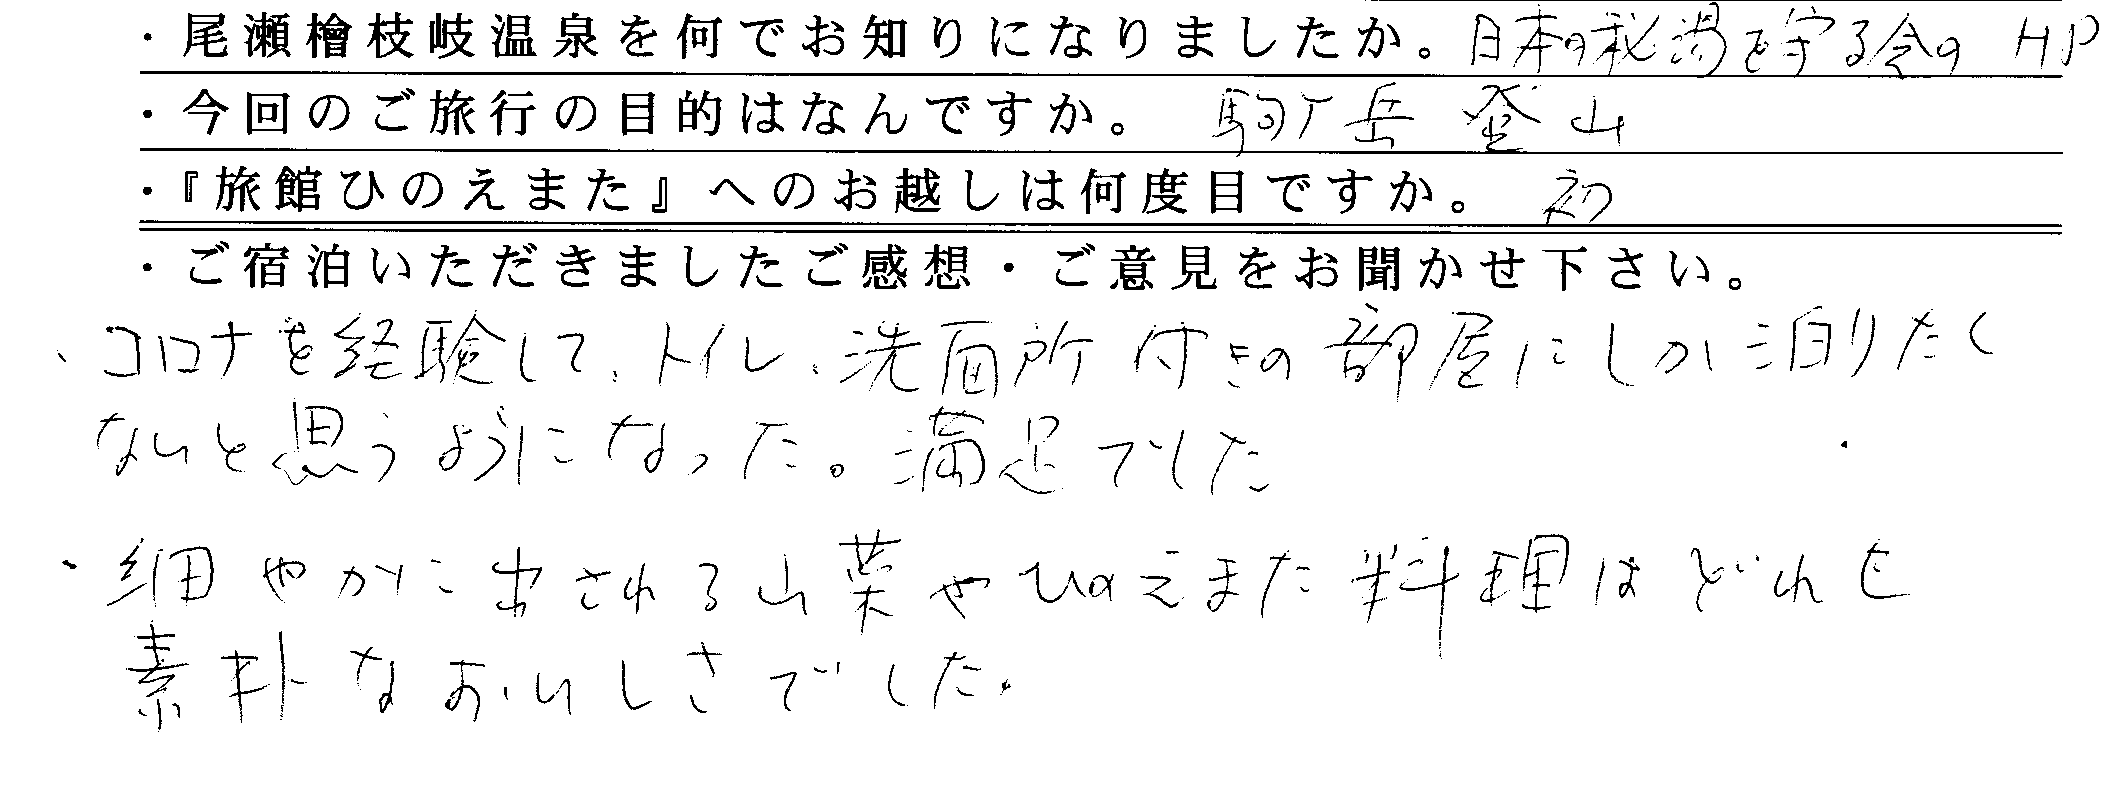 ・尾瀬檜枝岐温泉を何でお知りになりましたか。日本の秘湯を守る会の HP
・今回のご旅行の目的はなんですか。 駒ヶ岳 登山
・『旅館ひのえまた』へのお越しは何度目ですか。 初
・ご宿泊いただきましたご感想・ご意見をお聞かせ下さい。
・コロナを経験して、トイレ、洗面所付きの部屋にしか泊りたく
ないと思うようになった。満足でした
・細やかに出される山菜やひのえまた料理はどれも
素朴なおいしさでした。